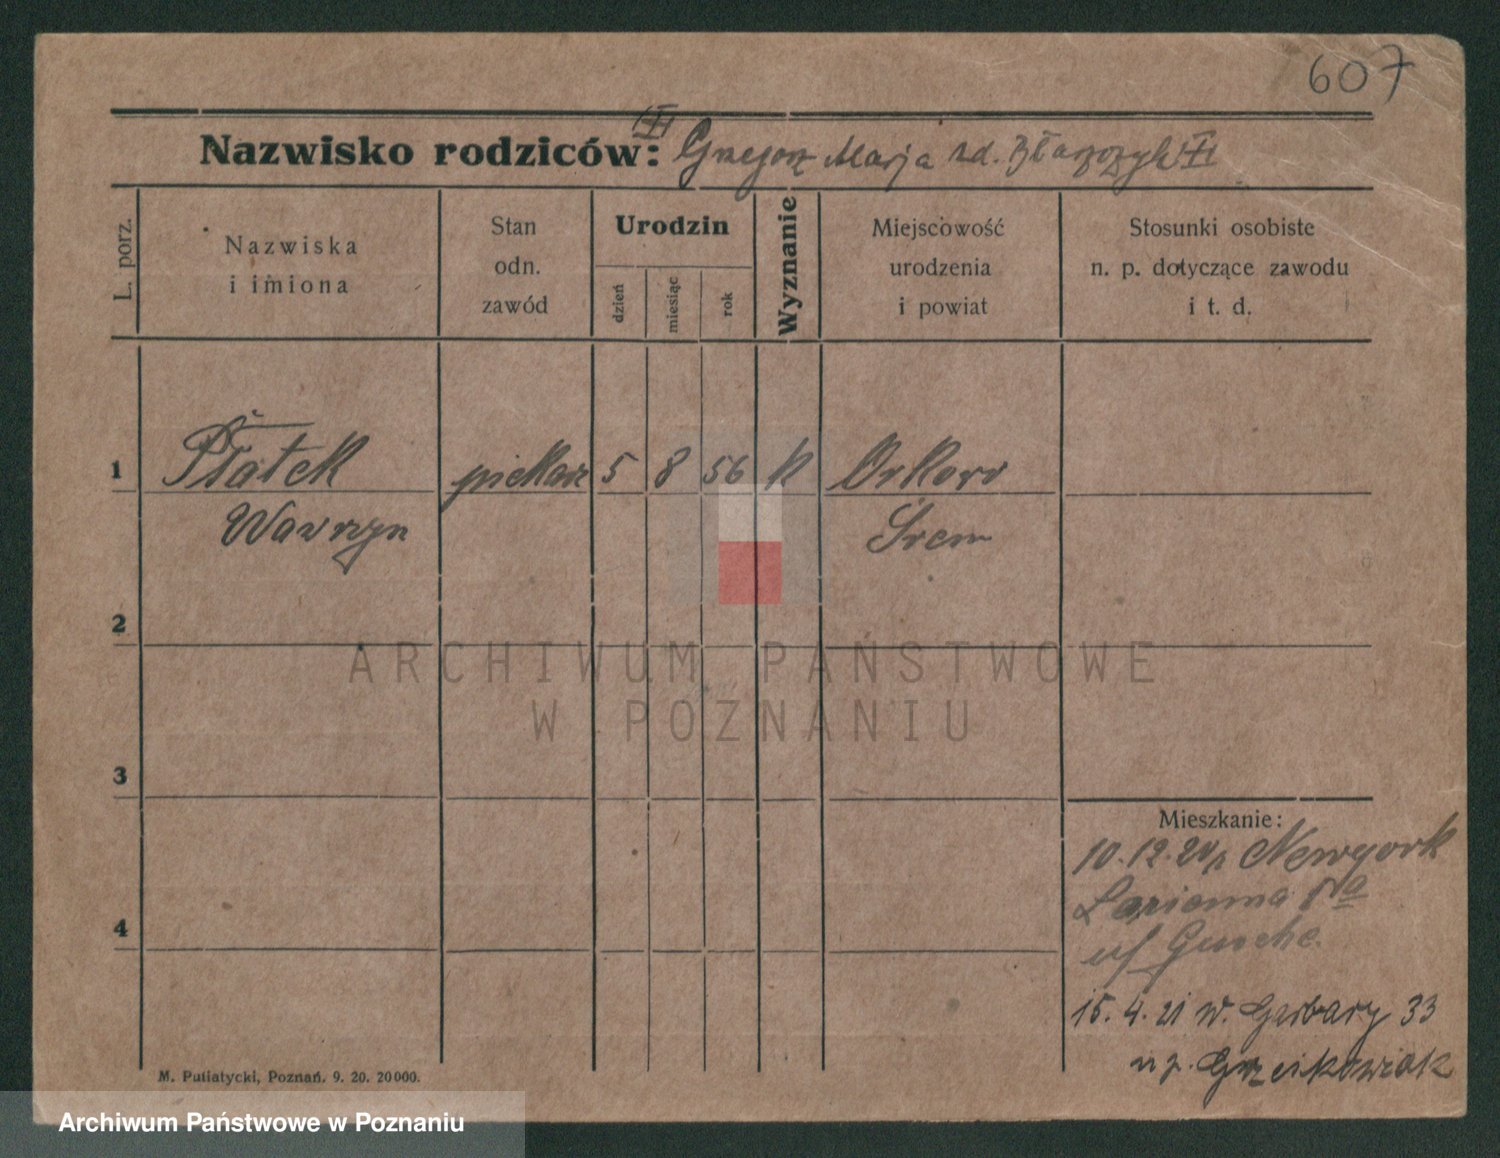 607
Nazwisko rodziców: Grzegorz Marja
L. porz.
Nazwiska
i imiona
Stan
odn.
zawód
Urodzin
dzień
miesiąc
rok
Wyznanie
Miejscowość
urodzenia
i powiat
Stosunki osobiste
n. p. dotyczące zawodu
i t. d.
1
Płatek piekarz 5 8 56 k
Wawrzyn Śrem
2
3
4
ARCHIWUM PAŃSTWOWE
W POZNANIU
Mieszkanie:
10.12.20 Newyork
15.4.21 w. Garbary 33
Grześkowiak
M. Putiatycki, Poznań. 9. 20. 20000.
Archiwum Państwowe w Poznaniu